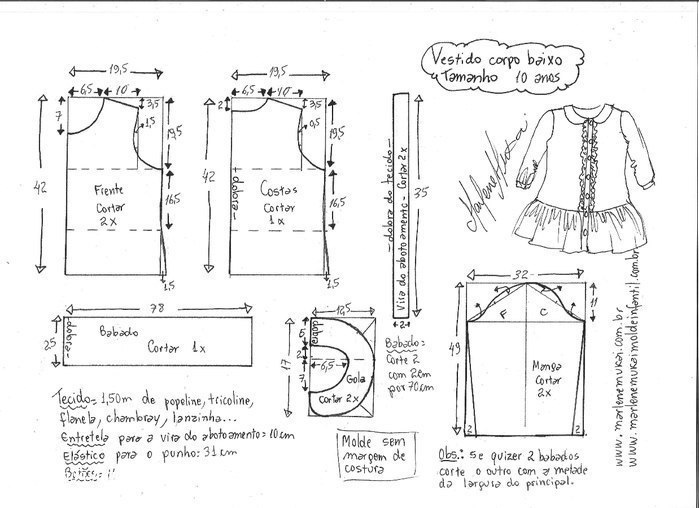 Vestido corpo baixo
Tamanho 10 anos
19,5
6,5 10
3,5
7
1,5
19,5
42
Frente
Cortar
2x
16,5
1,5
19,5
6,5 10
2
3,5
0,5
19,5
42
dobra
Costas
Cortar
1x
16,5
1,5
dobra do tecido
Vira do abotoamento - Cortar 2x
35
2
Marlene Mukai
78
25
dobra
Babado
Cortar 1x
12,5
17
5
dobra
2
6,5
7
Gola
Cortar 2x
Babado:
Corte 2
com 2cm
por 70cm
32
11
F C
49
Manga
Cortar
2x
2 2
www.marlenemukai.com.br
www.marlenemukaimoldeinfantil.com.br
Tecido= 1,50m de popeline, tricoline,
flanela, chambray, lanzinha...
Entretela para a vira do abotoamento= 10cm
Elástico para o punho: 31cm
Botões:
Molde sem
margem de
costura
Obs.: Se quizer 2 babados
corte o outro com a metade
da largura do principal.